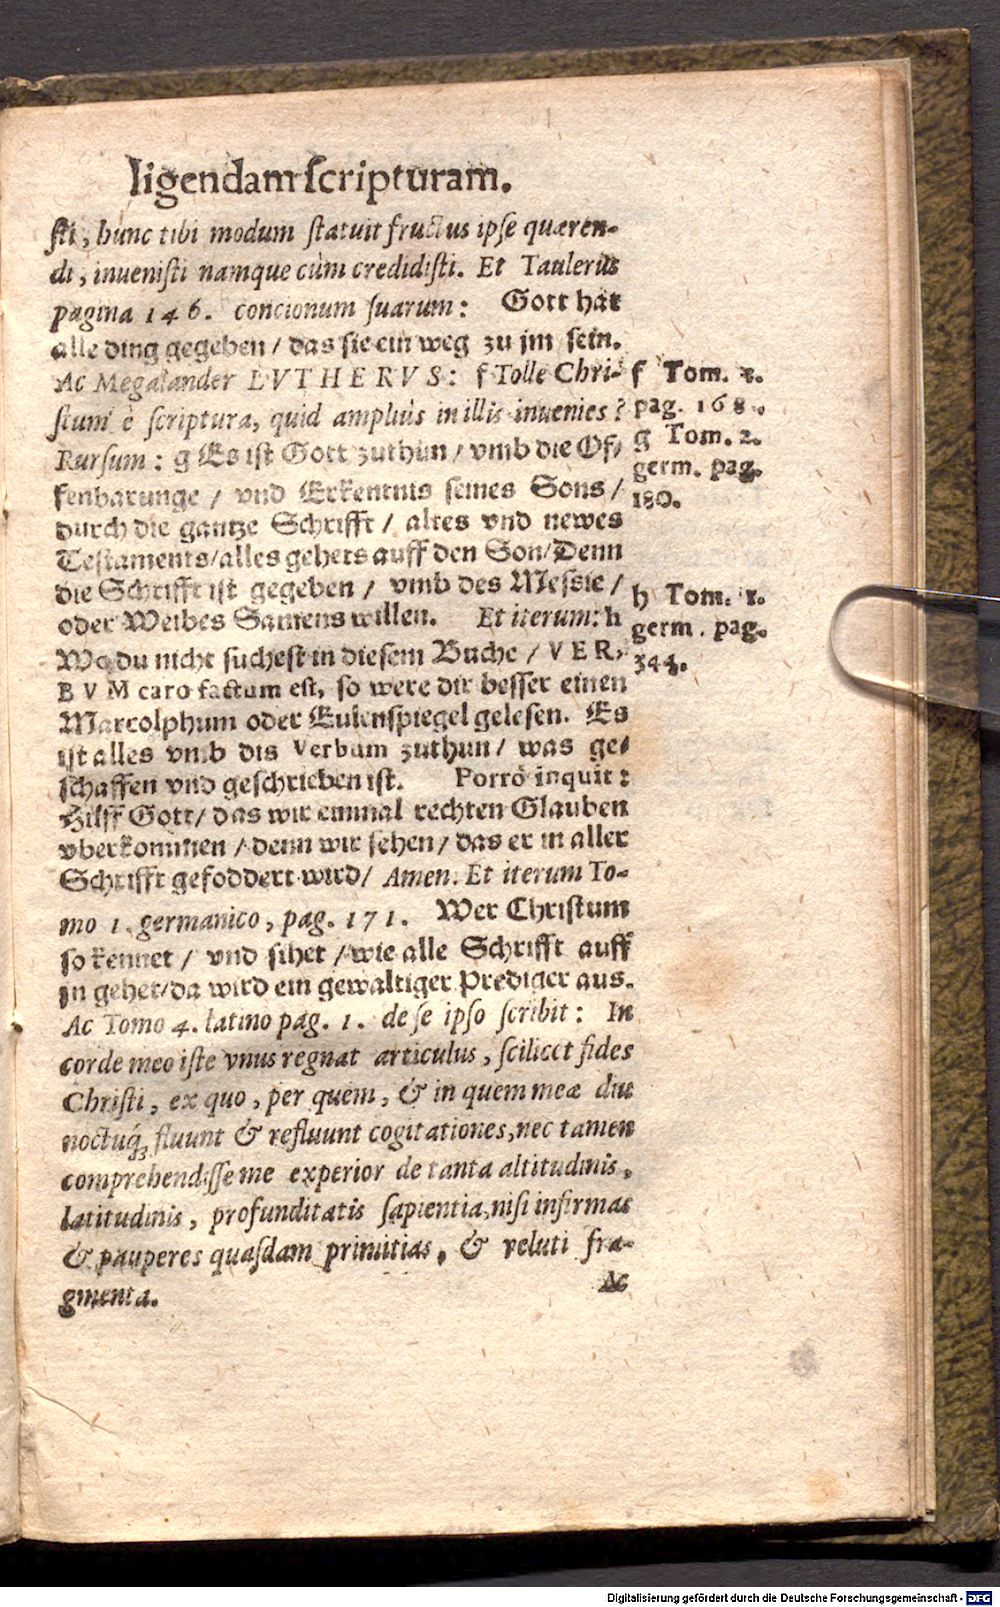 ligendam scripturam.
sti, hunc tibi modum statuit fructus ipse quæren-
di, inuenisti namque cùm credidisti. Et Taulerus
pagina 146. concionum suarum: Gott hat
alle ding gegeben / das sie ein weg zu jm sein.
Ac Megalander LVTHERVS: f Tolle Chri-
stum è scriptura, quid ampliùs in illis inuenies?
Rursum: g Es ist Gott zuthun / vmb die Of-
fenbarunge / vnd Erkentnis seines Sons /
durch die gantze Schrifft / altes vnd newes
Testaments/alles gehets auff den Son/Denn
die Schrifft ist gegeben / vmb des Messie /
oder Weibes Samens willen. Et iterum: h
Wo du nicht suchest in diesem Buche / VER-
BVM caro factum est, so were dir besser einen
Marcolphum oder Eulenspiegel gelesen. Es
ist alles vmb dis Verbum zuthun / was ge-
schaffen vnd geschrieben ist. Porrò inquit:
Hilff Gott/ das wir einmal rechten Glauben
vberkommen / denn wir sehen / das er in aller
Schrifft gefoddert wird/ Amen. Et iterum To-
mo 1. germanico, pag. 171. Wer Christum
so kennet / vnd sihet / wie alle Schrifft auff
jn gehet/da wird ein gewaltiger Prediger aus.
Ac Tomo 4. latino pag. 1. de se ipso scribit: In
corde meo iste vnus regnat articulus, scilicet fides
Christi, ex quo, per quem, & in quem meæ diu
noctuq́; fluunt & refluunt cogitationes, nec tamen
comprehendisse me experior de tanta altitudinis,
latitudinis, profunditatis sapientia, nisi infirmas
& pauperes quasdam primitias, & veluti fra-
gmenta.
Ac
f Tom. 1.
pag. 168.
g Tom. 2.
germ. pag.
180.
h Tom. 1.
germ. pag.
344.
Digitalisierung gefördert durch die Deutsche Forschungsgemeinschaft - DFG